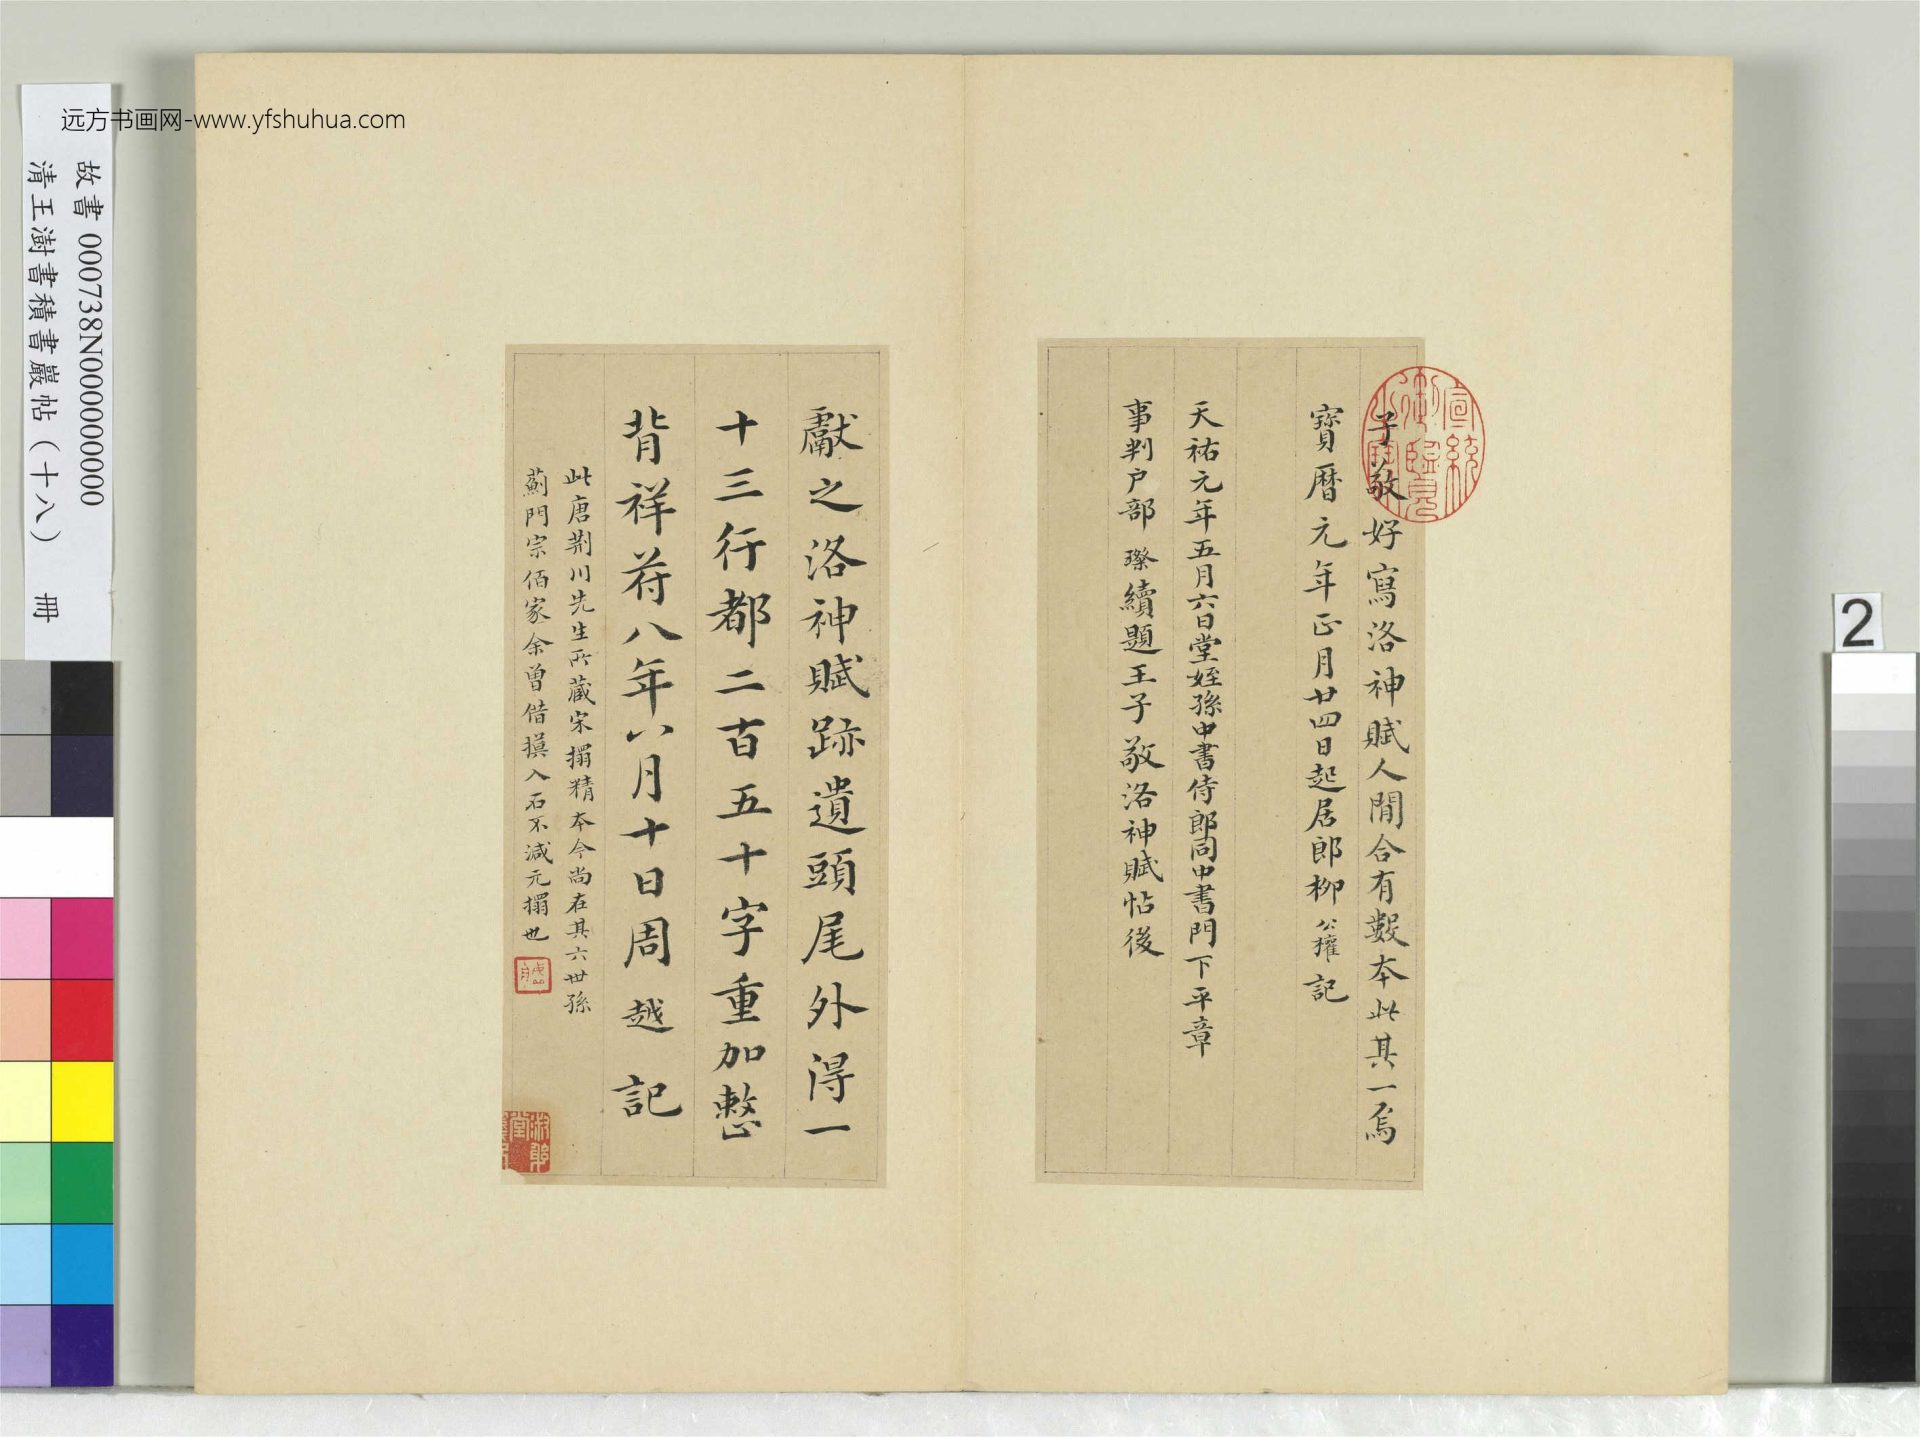 远方书画网-www.yfshuhua.com
故書 000738N000000000
清王澍書積書巖帖（十八） 冊
2
宣統御覽之寶
子敬好寫洛神賦人閒合有數本此其一焉
寶曆元年正月廿四日起居郎柳公權記
天祐元年五月六日堂姪孫中書侍郎同中書門下平章
事判户部璨續題王子敬洛神賦帖後
獻之洛神賦跡遺頭尾外得一
十三行都二百五十字重加整
背祥苻八年八月十日周越記
此唐荆川先生所藏宋搨精本今尚在其六世孫
薊門宗伯家余曾借摸入石不減元搨也